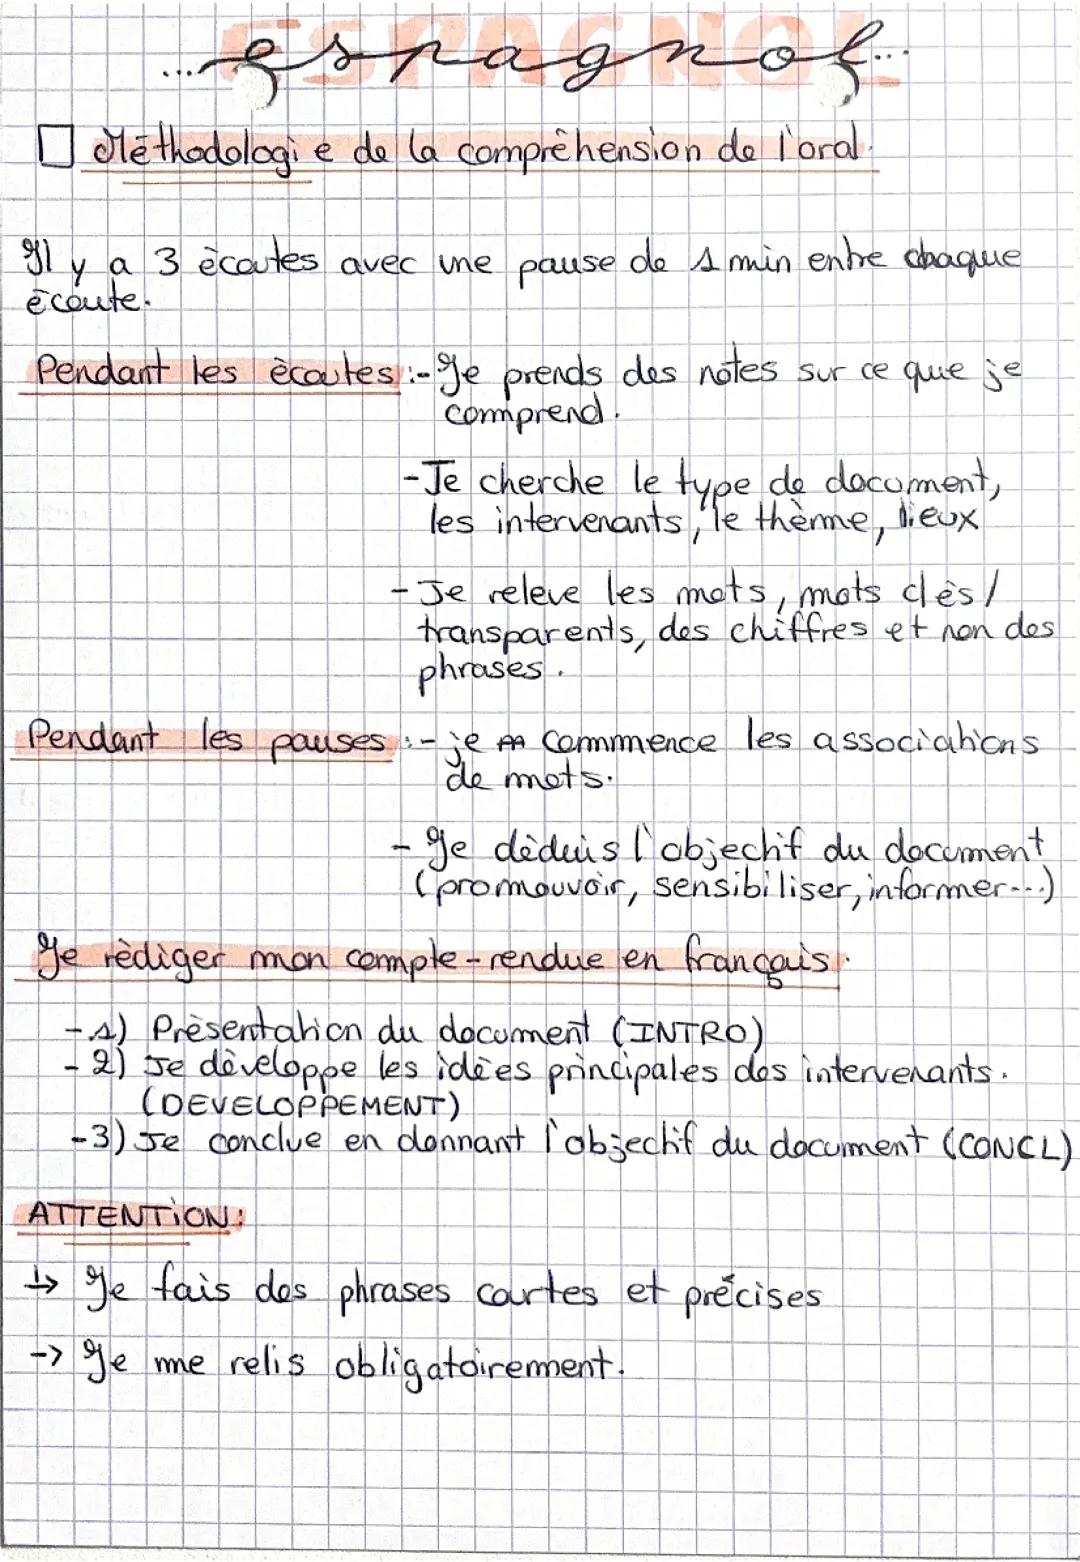 ESPAGNOL
...espagnol...
Méthodologie de la compréhension de l'oral.
Il y a 3 écoutes avec une pause de 1 min entre chaque
écoute.
Pendant les écoutes :- Je prends des notes sur ce que je
comprend.
- Je cherche le type de document,
les intervenants, le thème, lieux
- Je releve les mots, mots clés/
transparents, des chiffres et non des
phrases.
Pendant les pauses :- je commence les associations
de mots.
- Je déduis l'objectif du document
(promouvoir, sensibiliser, informer...)
Je rédiger mon compte-rendue en français.
-1) Présentation du document (INTRO)
-2) Je développe les idées principales des intervenants.
(DEVELOPPEMENT)
-3) Je conclue en donnant l'objectif du document (CONCL)
ATTENTION:
↳ Je fais des phrases courtes et précises
-> Je me relis obligatoirement.